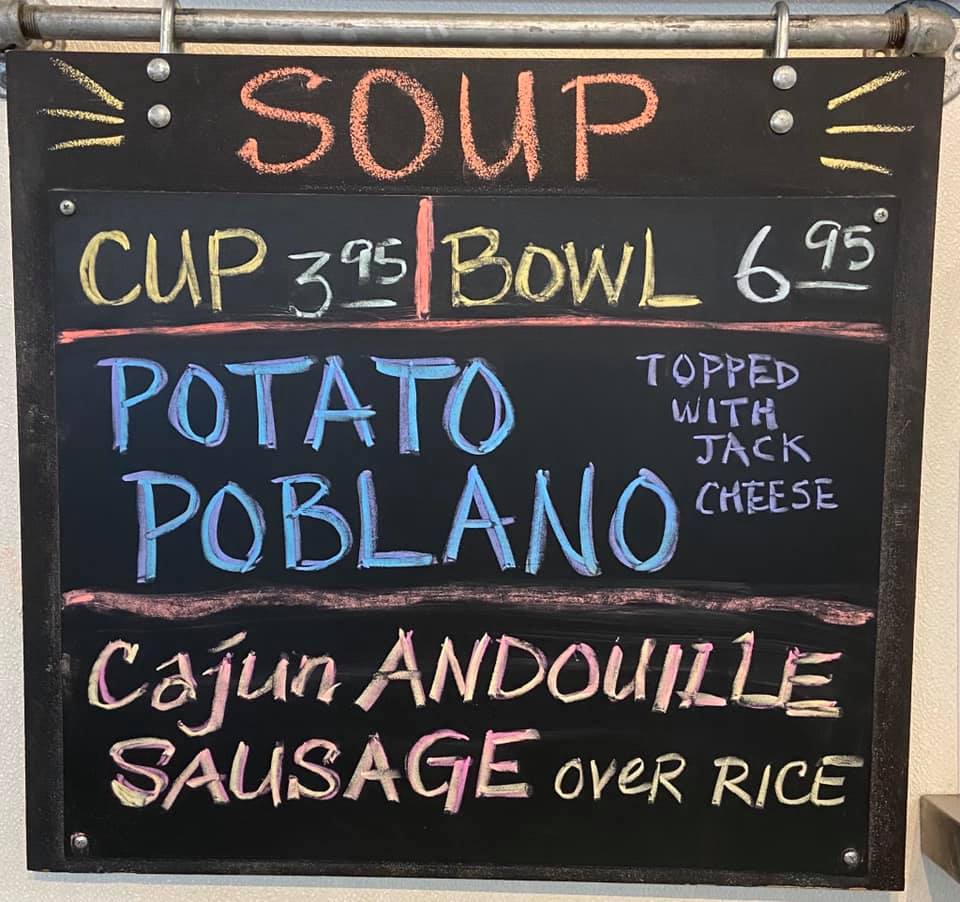 SOUP
CUP 3.95 BOWL 6.95
POTATO
POBLANO
TOPPED
WITH
JACK
CHEESE
Cajun ANDOUILLE
SAUSAGE over RICE